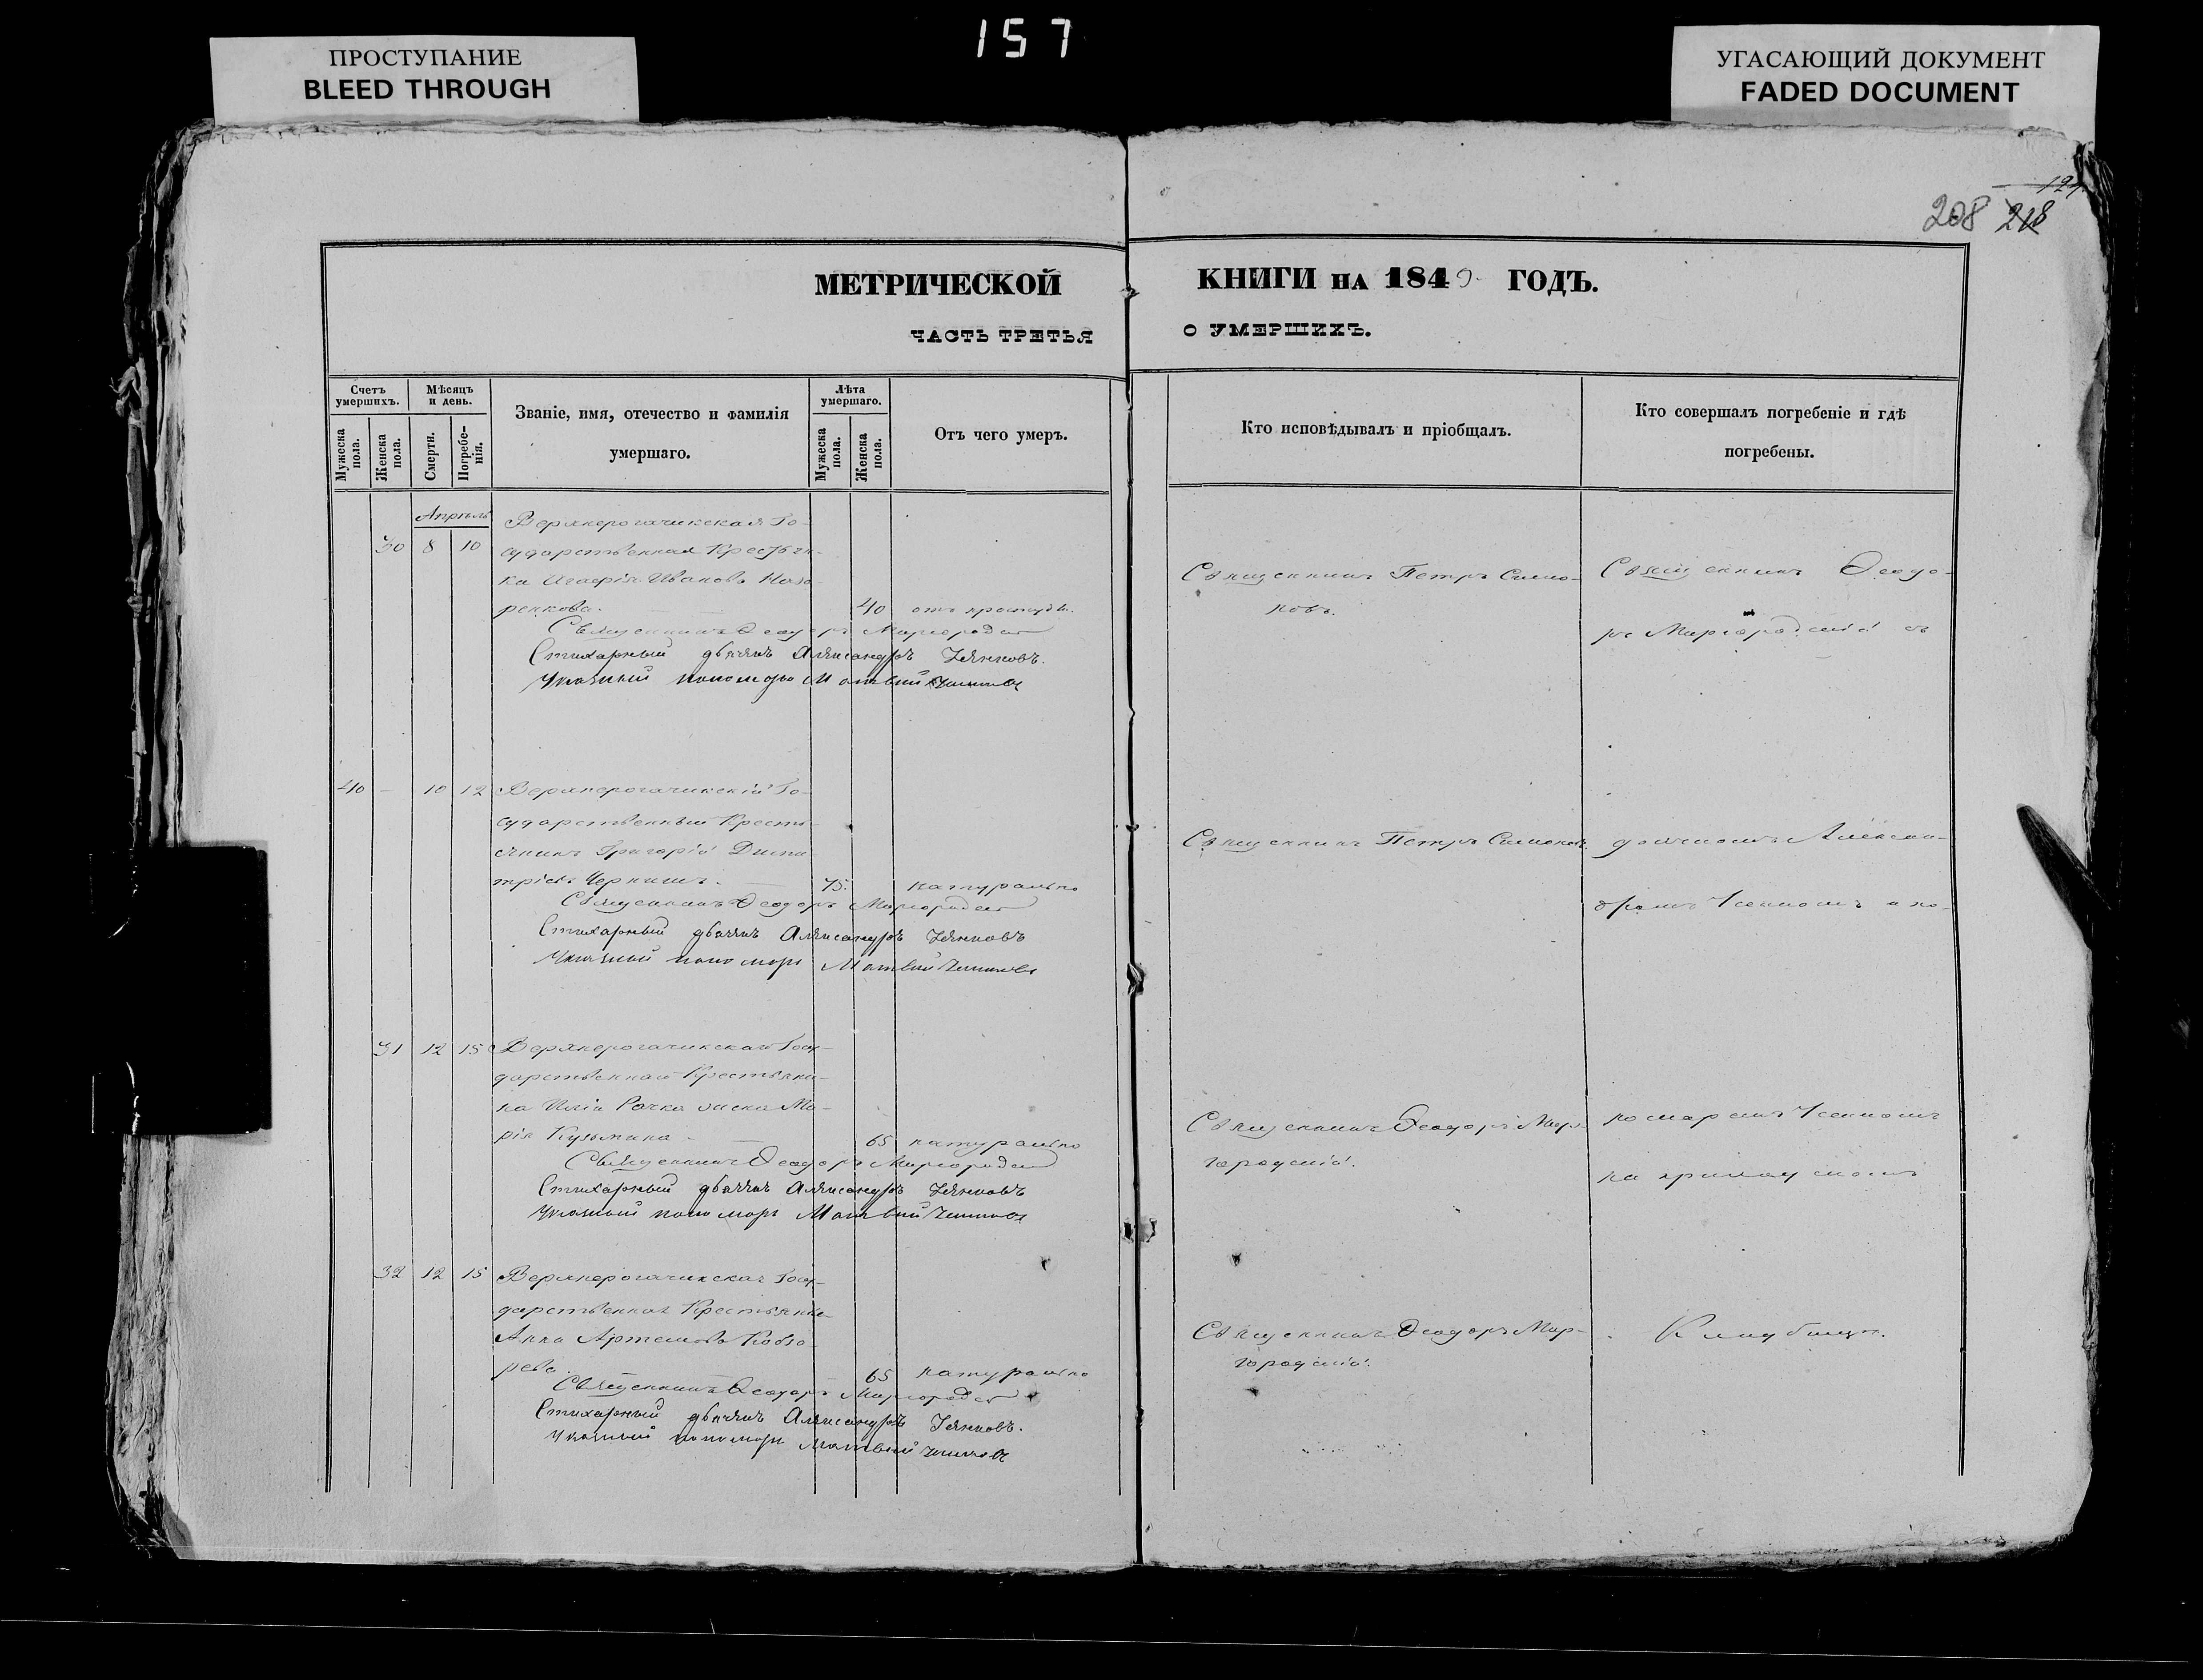 157
ПРОСТУПАНИЕ
BLEED THROUGH
УГАСАЮЩИЙ ДОКУМЕНТ
FADED DOCUMENT
208 218
МЕТРИЧЕСКОЙ КНИГИ НА 1849 ГОДЪ.
ЧАСТЬ ТРЕТЬЯ О УМЕРШИХЪ.
Счетъ умершихъ.
Мужеска пола.
Женска пола.
Мѣсяцъ и день.
Смерти.
Погребенія.
Званіе, имя, отечество и фамилія
умершаго.
Лѣта умершаго.
Мужеска пола.
Женска пола.
Отъ чего умеръ.
Кто исповѣдывалъ и пріобщалъ.
Кто совершалъ погребеніе и гдѣ
погребены.
Апрѣль
30 8 10
Верхнерогачикская Го-
сударственная Крестьян-
ка Иванова Назо-
ренкова. 40 отъ простуды.
Священникъ Ѳеодоръ Миргородскій
Стихарный дьячекъ Александръ
Указный пономарь Матвій
Священникъ Петръ Симо-
новъ.
Священникъ Ѳеодо-
ръ Миргородскій съ
40 - 10 12
Верхнерогачикскій Го-
сударственный Кресть-
янинъ Григорій Дими-
тріевъ Чернышъ. 75. натурально
Священникъ Ѳеодоръ Миргородскій
Стихарный дьячекъ Александръ
Указный пономарь Матвій
Священникъ Петръ Симоновъ.
дьячкомъ Алексан-
дромъ и по-
31 12 15
Верхнерогачикская Госу-
дарственная Крестьян-
ка Рачка жена Ма-
рія Кузьмина 65 натурально
Священникъ Ѳеодоръ Миргородскій
Стихарный дьячекъ Александръ
Указный пономарь Матвій
Священникъ Ѳеодоръ Мир-
городскій.
номаремъ
на приходскомъ
32 12 15
Верхнерогачикская Госу-
дарственная Крестьянка
Анна Артемова Кобзо-
рева 65 натурально
Священникъ Ѳеодоръ Миргородскій
Стихарный дьячекъ Александръ
Указный пономарь Матвій
Священникъ Ѳеодоръ Мир-
городскій.
Кладбищѣ.